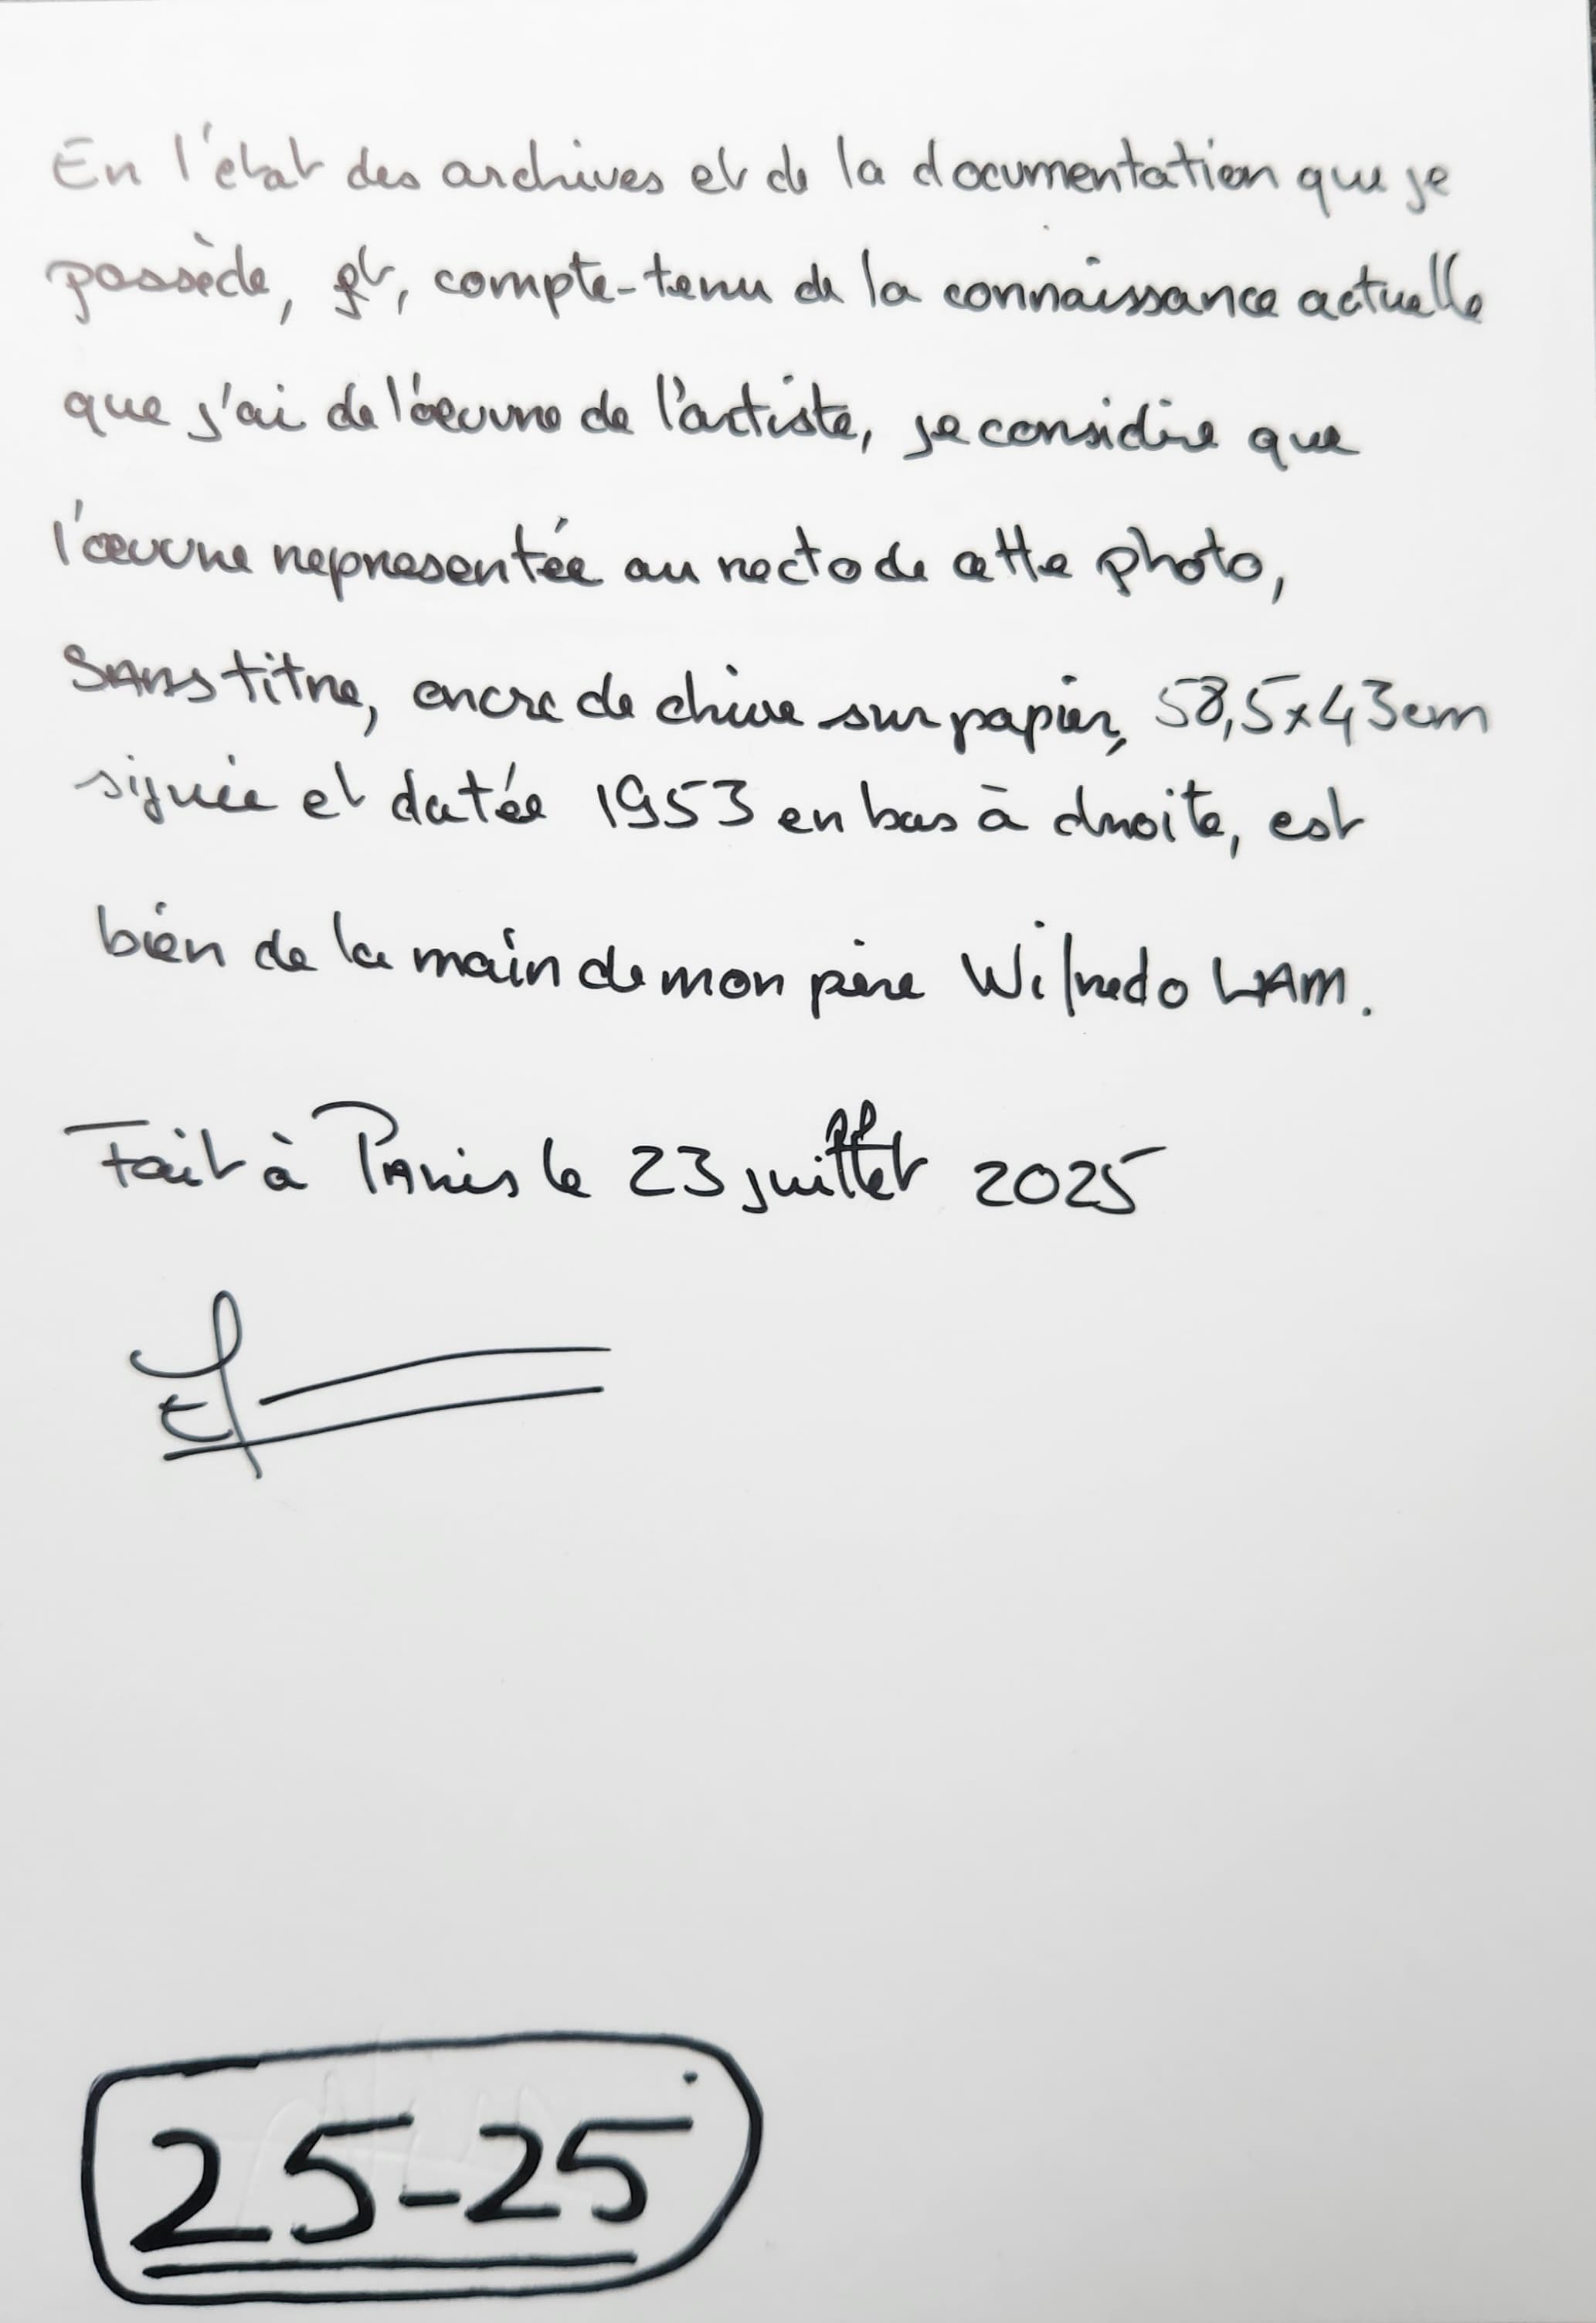 En l'état des archives et de la documentation que je
possède, et, compte-tenu de la connaissance actuelle
que j'ai de l'œuvre de l'artiste, je considère que
l'œuvre représentée au recto de cette photo,
SANS titre, encre de chine sur papier, 58,5x43cm
signée et datée 1953 en bas à droite, est
bien de la main de mon père Wifredo LAM.
Fait à PARis le 23 juillet 2025
25-25